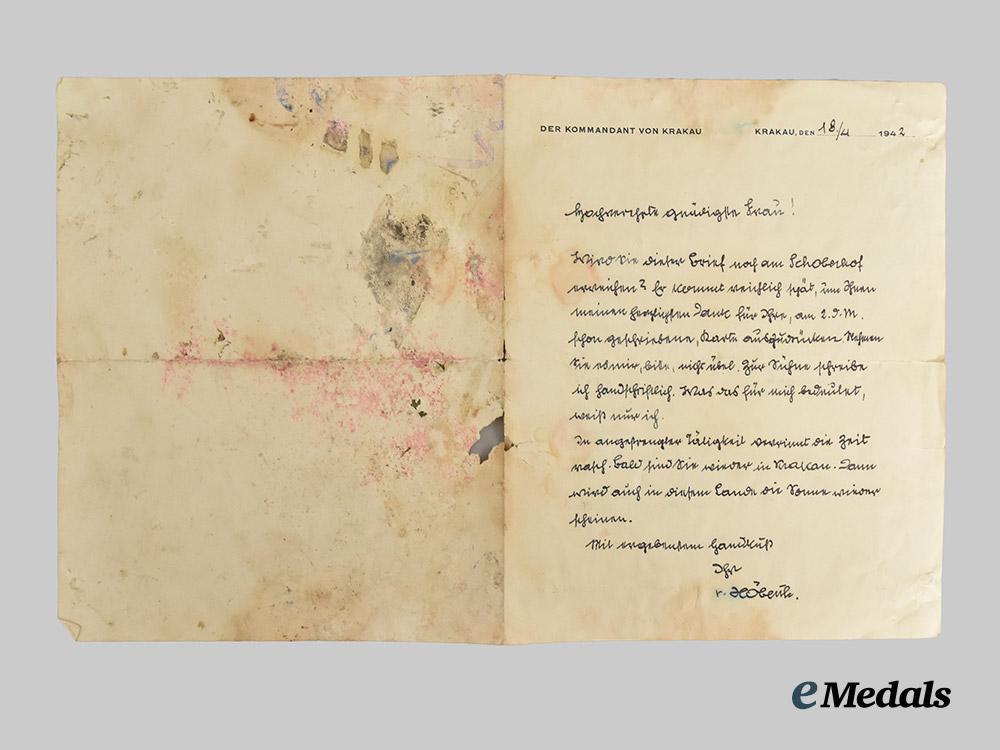 DER KOMMANDANT VON KRAKAU KRAKAU, DEN 18/4 1942
Hochverehrte gnädigste Frau!
Wird Sie dieser Brief noch am Schoberhof
erreichen? Er kommt reichlich spät, um Ihnen
meinen herzlichsten Dank für Ihre, am 2. d. M.
schon geschriebene, Karte auszudrücken. Nehmen
Sie es mir, bitte, nicht übel. Zur Sühne schreibe
ich handschriftlich. Was das für mich bedeutet,
weiß nur ich.
In angestrengter Tätigkeit verrinnt die Zeit
rasch. Bald sind Sie wieder in Krakau. Dann
wird auch in diesem Lande die Sonne wieder
scheinen.
Mit ergebenstem Handkuß
Ihr
v. Höberth.
eMedals